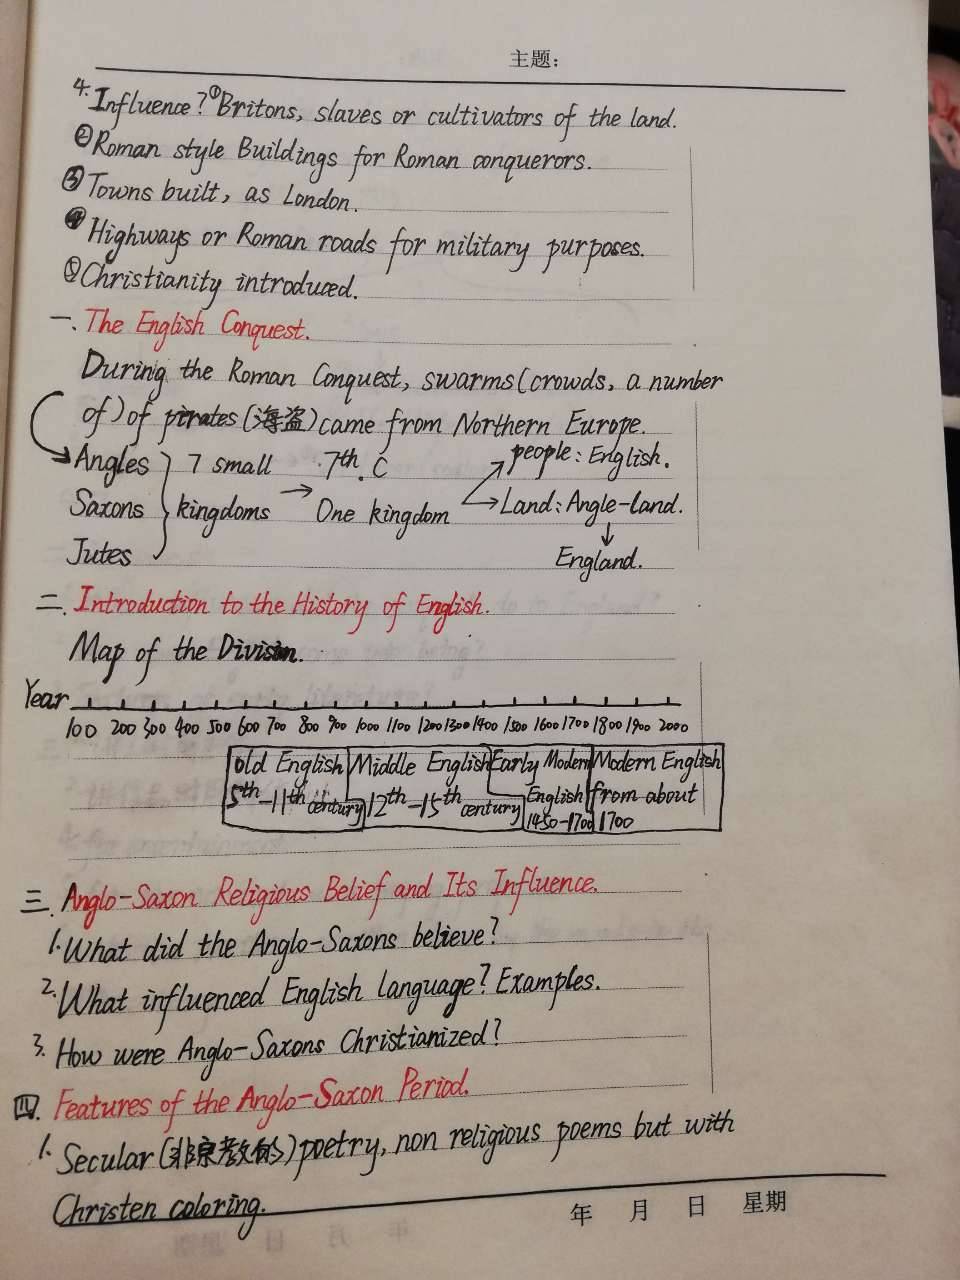 主题:
4. Influence? ①Britons, slaves or cultivators of the land.
②Roman style Buildings for Roman conquerors.
③Towns built, as London.
④Highways or Roman roads for military purposes.
⑤Christianity introduced.
一. The English Conquest.
During the Roman Conquest, swarms (crowds, a number
of) of pirates (海盗) came from Northern Europe.
Angles } 7 small 7th. C people: English.
Saxons kingdoms → One kingdom → Land: Angle-land.
Jutes England.
二. Introduction to the History of English.
Map of the Division.
Year
100 200 300 400 500 600 700 800 900 1000 1100 1200 1300 1400 1500 1600 1700 1800 1900 2000
old English Middle English Early Modern Modern English
5th-11th century 12th-15th century English from about
1450-1700 1700
三. Anglo-Saxon Religious Belief and Its Influence.
1. What did the Anglo-Saxons believe?
2. What influenced English language? Examples.
3. How were Anglo-Saxons Christianized?
四. Features of the Anglo-Saxon Period.
1. Secular (非宗教的) poetry, non religious poems but with
Christen coloring.
年 月 日 星期